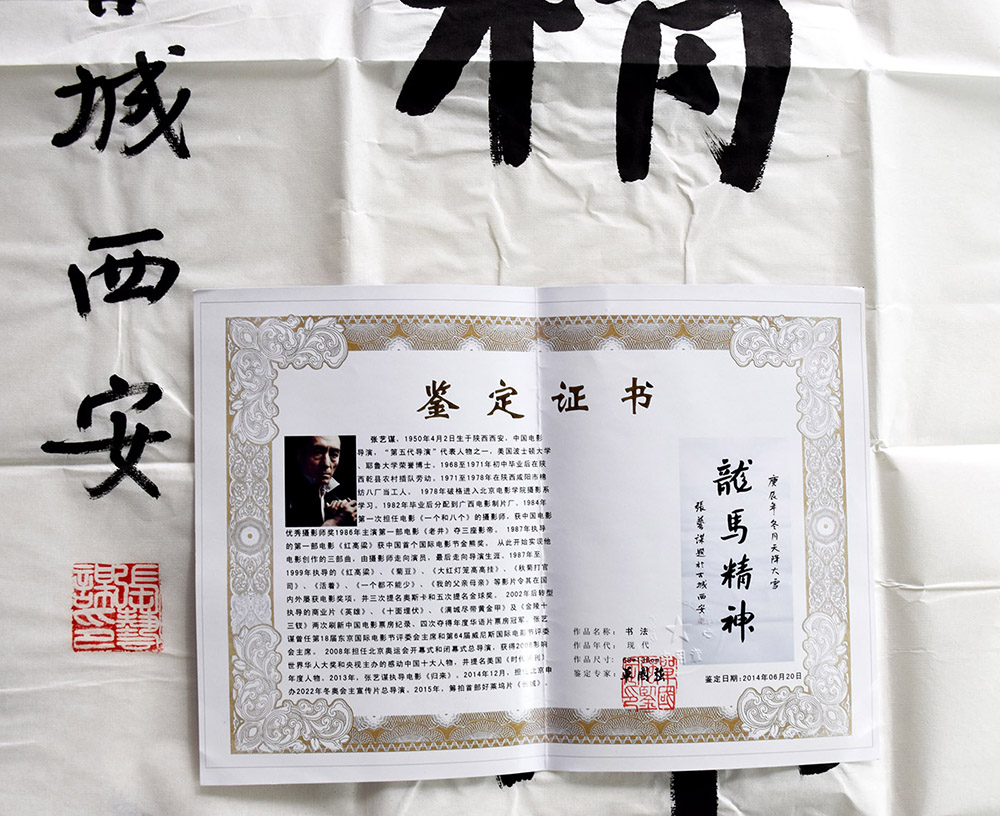 精
城
西
安
鉴定证书
张艺谋，1950年4月2日生于陕西西安，中国电影
导演，“第五代导演”代表人物之一，美国波士顿大学
、耶鲁大学荣誉博士。1968至1971年初中毕业后在陕
西乾县农村插队劳动，1971至1978年在陕西咸阳市棉
纺八厂当工人。 1978年破格进入北京电影学院摄影系
学习，1982年毕业后分配到广西电影制片厂。1984年
第一次担任电影《一个和八个》的摄影师，获中国电影
优秀摄影师奖1986年主演第一部电影《老井》夺三座影帝。 1987年执导
的第一部电影《红高粱》获中国首个国际电影节金熊奖。 从此开始实现他
电影创作的三部曲，由摄影师走向演员，最后走向导演生涯。1987年至
1999年执导的《红高粱》、《菊豆》、《大红灯笼高高挂》、《秋菊打官
司》、《活着》、《一个都不能少》、《我的父亲母亲》等影片令其在国
内外屡获电影奖项，并三次提名奥斯卡和五次提名金球奖。 2002年后转型
执导的商业片《英雄》、《十面埋伏》、《满城尽带黄金甲》及《金陵十
三钗》两次刷新中国电影票房纪录、四次夺得年度华语片票房冠军。张艺
谋曾任第18届东京国际电影节评委会主席和第64届威尼斯国际电影节评委
会主席。 2008年担任北京奥运会开幕式和闭幕式总导演，获得2008影响
世界华人大奖和央视主办的感动中国十大人物，并提名美国《时代周刊》
年度人物。2013年，张艺谋执导电影《归来》。2014年12月，担任北京申
办2022年冬奥会主宣传片总导演。2015年，筹拍首部好莱坞片《长城》。
庚辰年冬月天降大雪
龍馬精神
張藝謀題於古城西安
作品名称： 书法
作品年代： 现代
作品尺寸：
鉴定专家：
鉴定日期:2014年06月20日